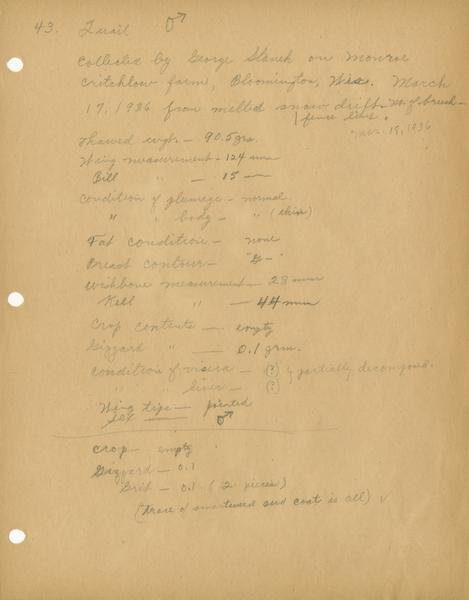 43. Quail ♂
Collected by George Stanek on Monroe
Critchlow farm, Bloomington, Wis. March
17, 1936 from melted snow drift
fence line. Mar. 19, 1936
Thawed wgt. - 90.5 grs.
Wing measurement - 124 mm
Bill " - 15 -
Condition of plumage - normal.
" " body - " (thin)
Fat condition - none
Breast contour - "G-"
Wishbone measurement - 28 mm
Kell " - 44 mm
Crop contents - empty
Gizzard " - 0.1 grm.
Condition of visera - (?) } partially decompond.
" " liver - (?)
Wing tips - pointed
Sex - ♂
Crop - empty
Gizzard - 0.1
Grit - 0.1 (2 pieces)
(trace of seed coat is all) √